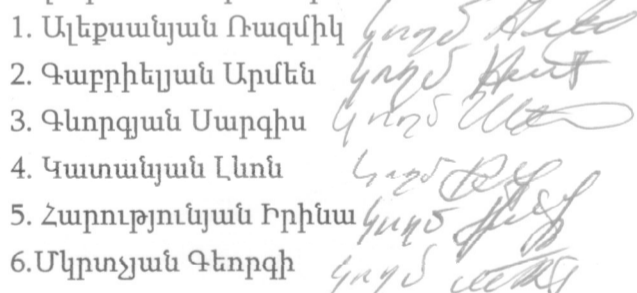 1. Ալեքսանյան Ռազմիկ կողմ
2. Գաբրիելյան Արմեն կողմ
3. Գևորգյան Սարգիս կողմ
4. Կատանյան Լևոն կողմ
5. Հարությունյան Իրինա կողմ
6.Մկրտչյան Գեորգի կողմ